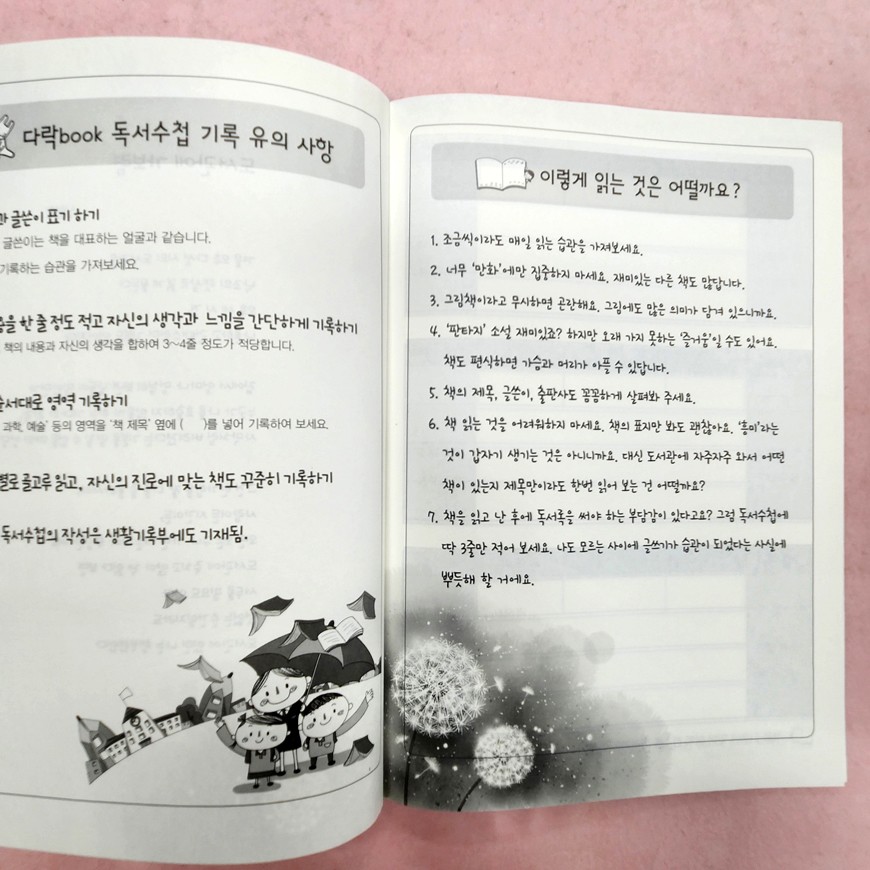 다락book 독서수첩 기록 유의 사항
글쓴이 표기 하기
글쓴이는 책을 대표하는 얼굴과 같습니다.
기록하는 습관을 가져보세요.
한 줄 정도 적고 자신의 생각과 느낌을 간단하게 기록하기
책의 내용과 자신의 생각을 합하여 3~4줄 정도가 적당합니다.
영역 기록하기
과학, 예술' 등의 영역을 '책 제목' 옆에 ( )를 넣어 기록하여 보세요.
골고루 읽고, 자신의 진로에 맞는 책도 꾸준히 기록하기
독서수첩의 작성은 생활기록부에도 기재됨.
이렇게 읽는 것은 어떨까요?
1. 조금씩이라도 매일 읽는 습관을 가져보세요.
2. 너무 '만화'에만 집중하지 마세요. 재미있는 다른 책도 많답니다.
3. 그림책이라고 무시하면 곤란해요. 그림에도 많은 의미가 담겨 있으니까요.
4. '판타지' 소설 재미있죠? 하지만 오래 가지 못하는 '즐거움'일 수도 있어요.
책도 편식하면 가슴과 머리가 아플 수 있답니다.
5. 책의 제목, 글쓴이, 출판사도 꼼꼼하게 살펴봐 주세요.
6. 책 읽는 것을 어려워하지 마세요. 책의 표지만 봐도 괜찮아요. '흥미'라는
것이 갑자기 생기는 것은 아니니까요. 대신 도서관에 자주자주 와서 어떤
책이 있는지 제목만이라도 한번 읽어 보는 건 어떨까요?
7. 책을 읽고 난 후에 독서록을 써야 하는 부담감이 있다고요? 그럼 독서수첩에
딱 3줄만 적어 보세요. 나도 모르는 사이에 글쓰기가 습관이 되었다는 사실에
뿌듯해 할 거에요.